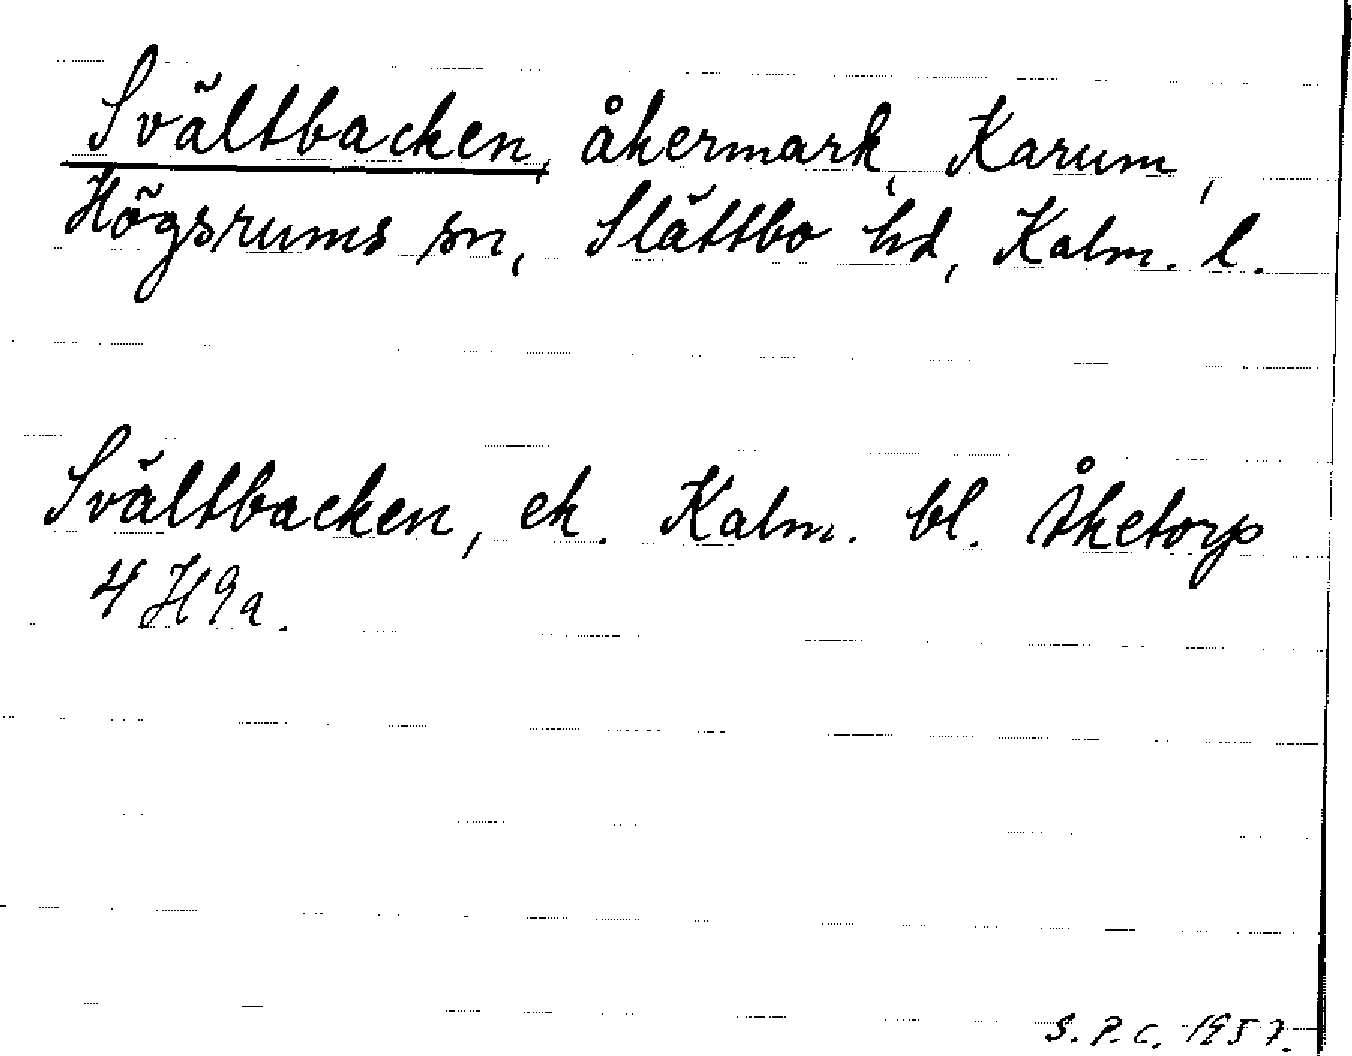 Svältbacken, åkermark, Karum,
Högsrums sn, Slättbo hd, Kalm. l.
Svältbacken, ek. Kalm. bl. Åketorp
4 H 9a.
S. P. C. 1957.